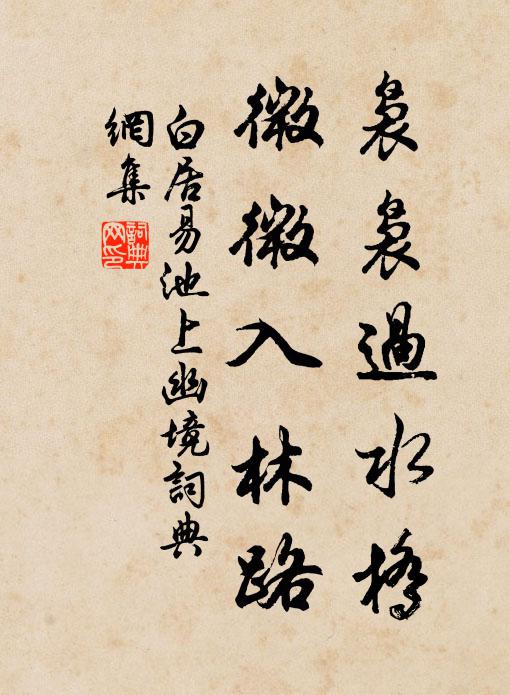 裊裊過水橋
微微入林路
白居易池上幽境詞典
網集
詞典
网印